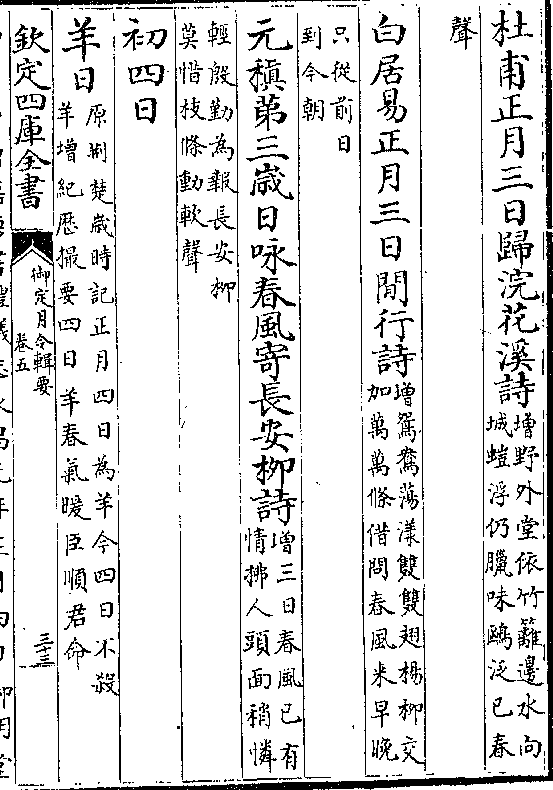 杜甫正月三日歸浣花溪詩增野外堂依竹籬邊水向
城螘浮仍臘味鷗泛已春
聲
白居易正月三日閒行詩增鴛鴦蕩漾雙雙翅楊柳交
加萬萬條借問春風来早晚
只從前日
到今朝
元稹第三歲日咏春風寄長安柳詩增三日春風已有
情拂人頭面稍憐
輕殷勤為報長安柳
莫惜枝條動軟聲
初四日
羊日原荆楚歲時記正月四日為羊今四日不殺
羊增紀歴撮要四日羊春氣暖臣順君命
欽定四庫全書
御定月令輯要
卷五
三十三